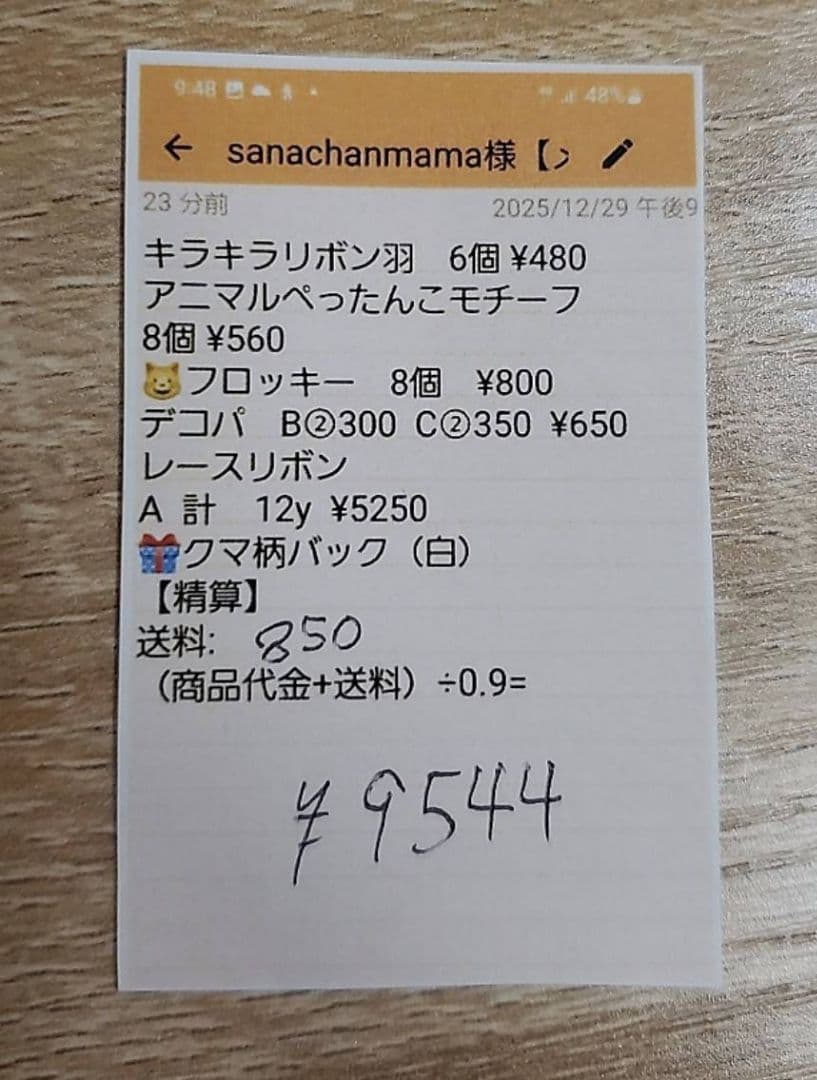 9:48 48%
← sanachanmama様【
23 分前 2025/12/29 午後9
キラキラリボン羽 6個 ¥480
アニマルぺったんこモチーフ
8個 ¥560
😺フロッキー 8個 ¥800
デコパ B②300 C②350 ¥650
レースリボン
A 計 12y ¥5250
🎁クマ柄バック（白）
【精算】
送料: 850
（商品代金+送料）÷0.9=
¥9544